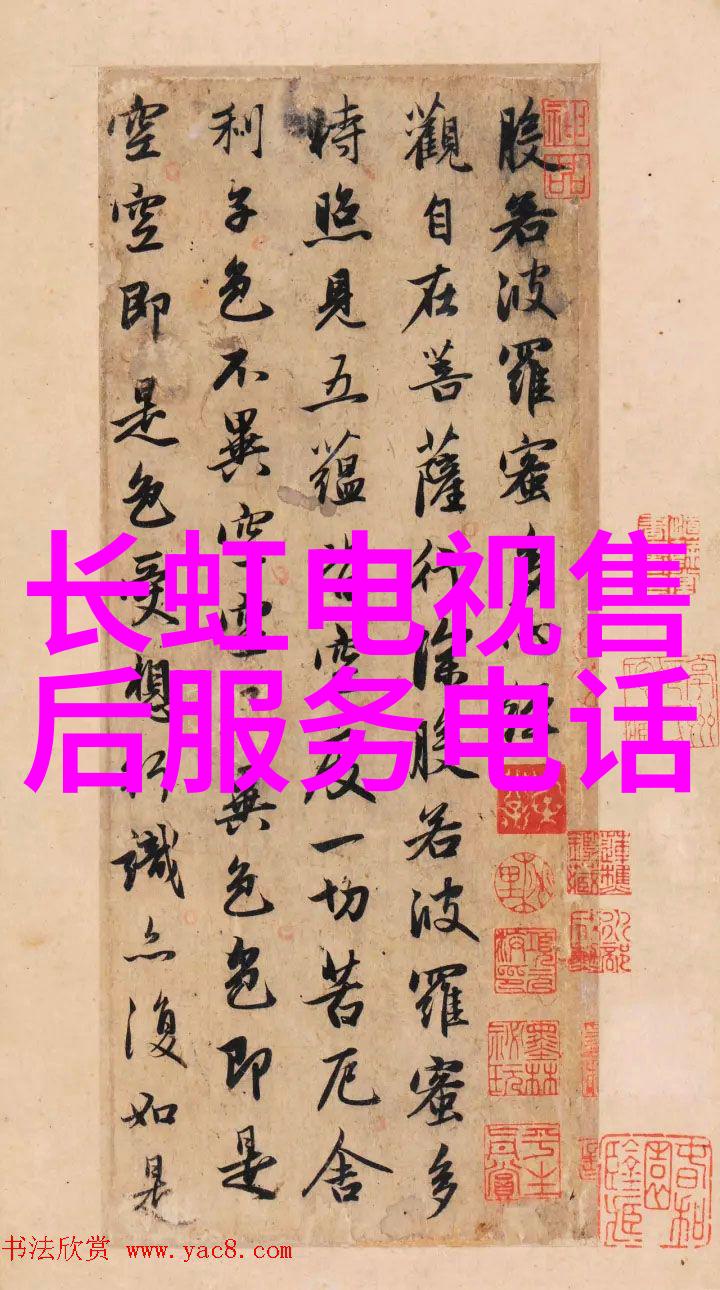 般若波羅蜜多心經
觀自在菩薩行深般若波羅蜜多
時照見五蘊皆空度一切苦厄舍
利子色不異空空不異色色即是
空空即是色受想行識亦復如是
长虹电视售
后服务电话
神品
墨林秘玩
书法欣赏 www.yac8.com